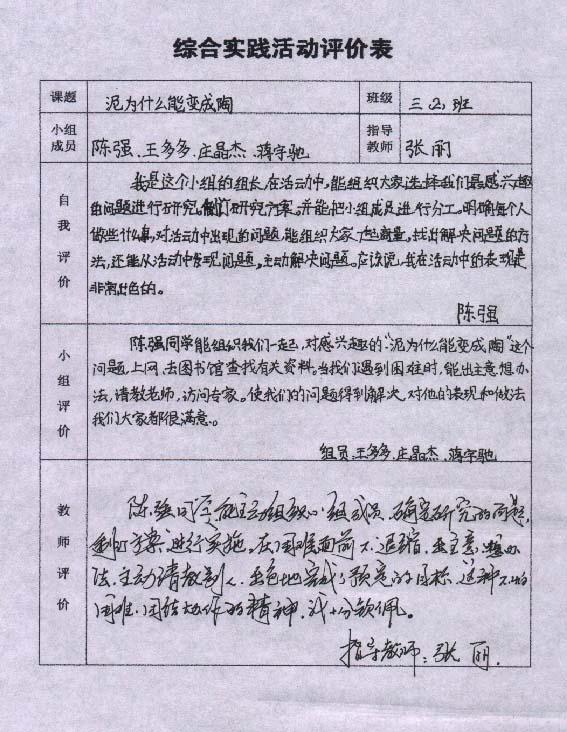 综合实践活动评价表
课题 泥为什么能变成陶 班级 三(2)班
小组成员 陈强.王多多.庄晶杰.蒋宇驰 指导教师 张丽
自我评价
我是这个小组的组长在活动中,能组织大家选择我们最感兴趣
的问题进行研究。制订研究方案。并能把小组成员进行分工。明确每个人
做些什么事,对活动中出现的问题,能组织大家一起商量。找出解决问题的方
法,还能从活动中发现问题。主动解决问题。应该说,我在活动中的表现是
非常出色的。
陈强
小组评价
陈强同学能组织我们一起,对感兴趣的:"泥为什么能变成陶"这个
问题,上网,去图书馆查找有关资料,当我们遇到困难时,能出主意想办
法,请教老师,访问专家。使我们的问题得到解决,对他的表现和做法
我们大家都很满意。
组员.王多多.庄晶杰.蒋宇驰
教师评价
陈强同学能主动组织小组成员,确定研究的问题,
制订方案,进行实施。在困难面前不退缩,出主意,想办
法,主动请教别人,出色地完成了预定的目标,这种不怕
困难,团结协作的精神,我十分钦佩。
指导教师:张丽.